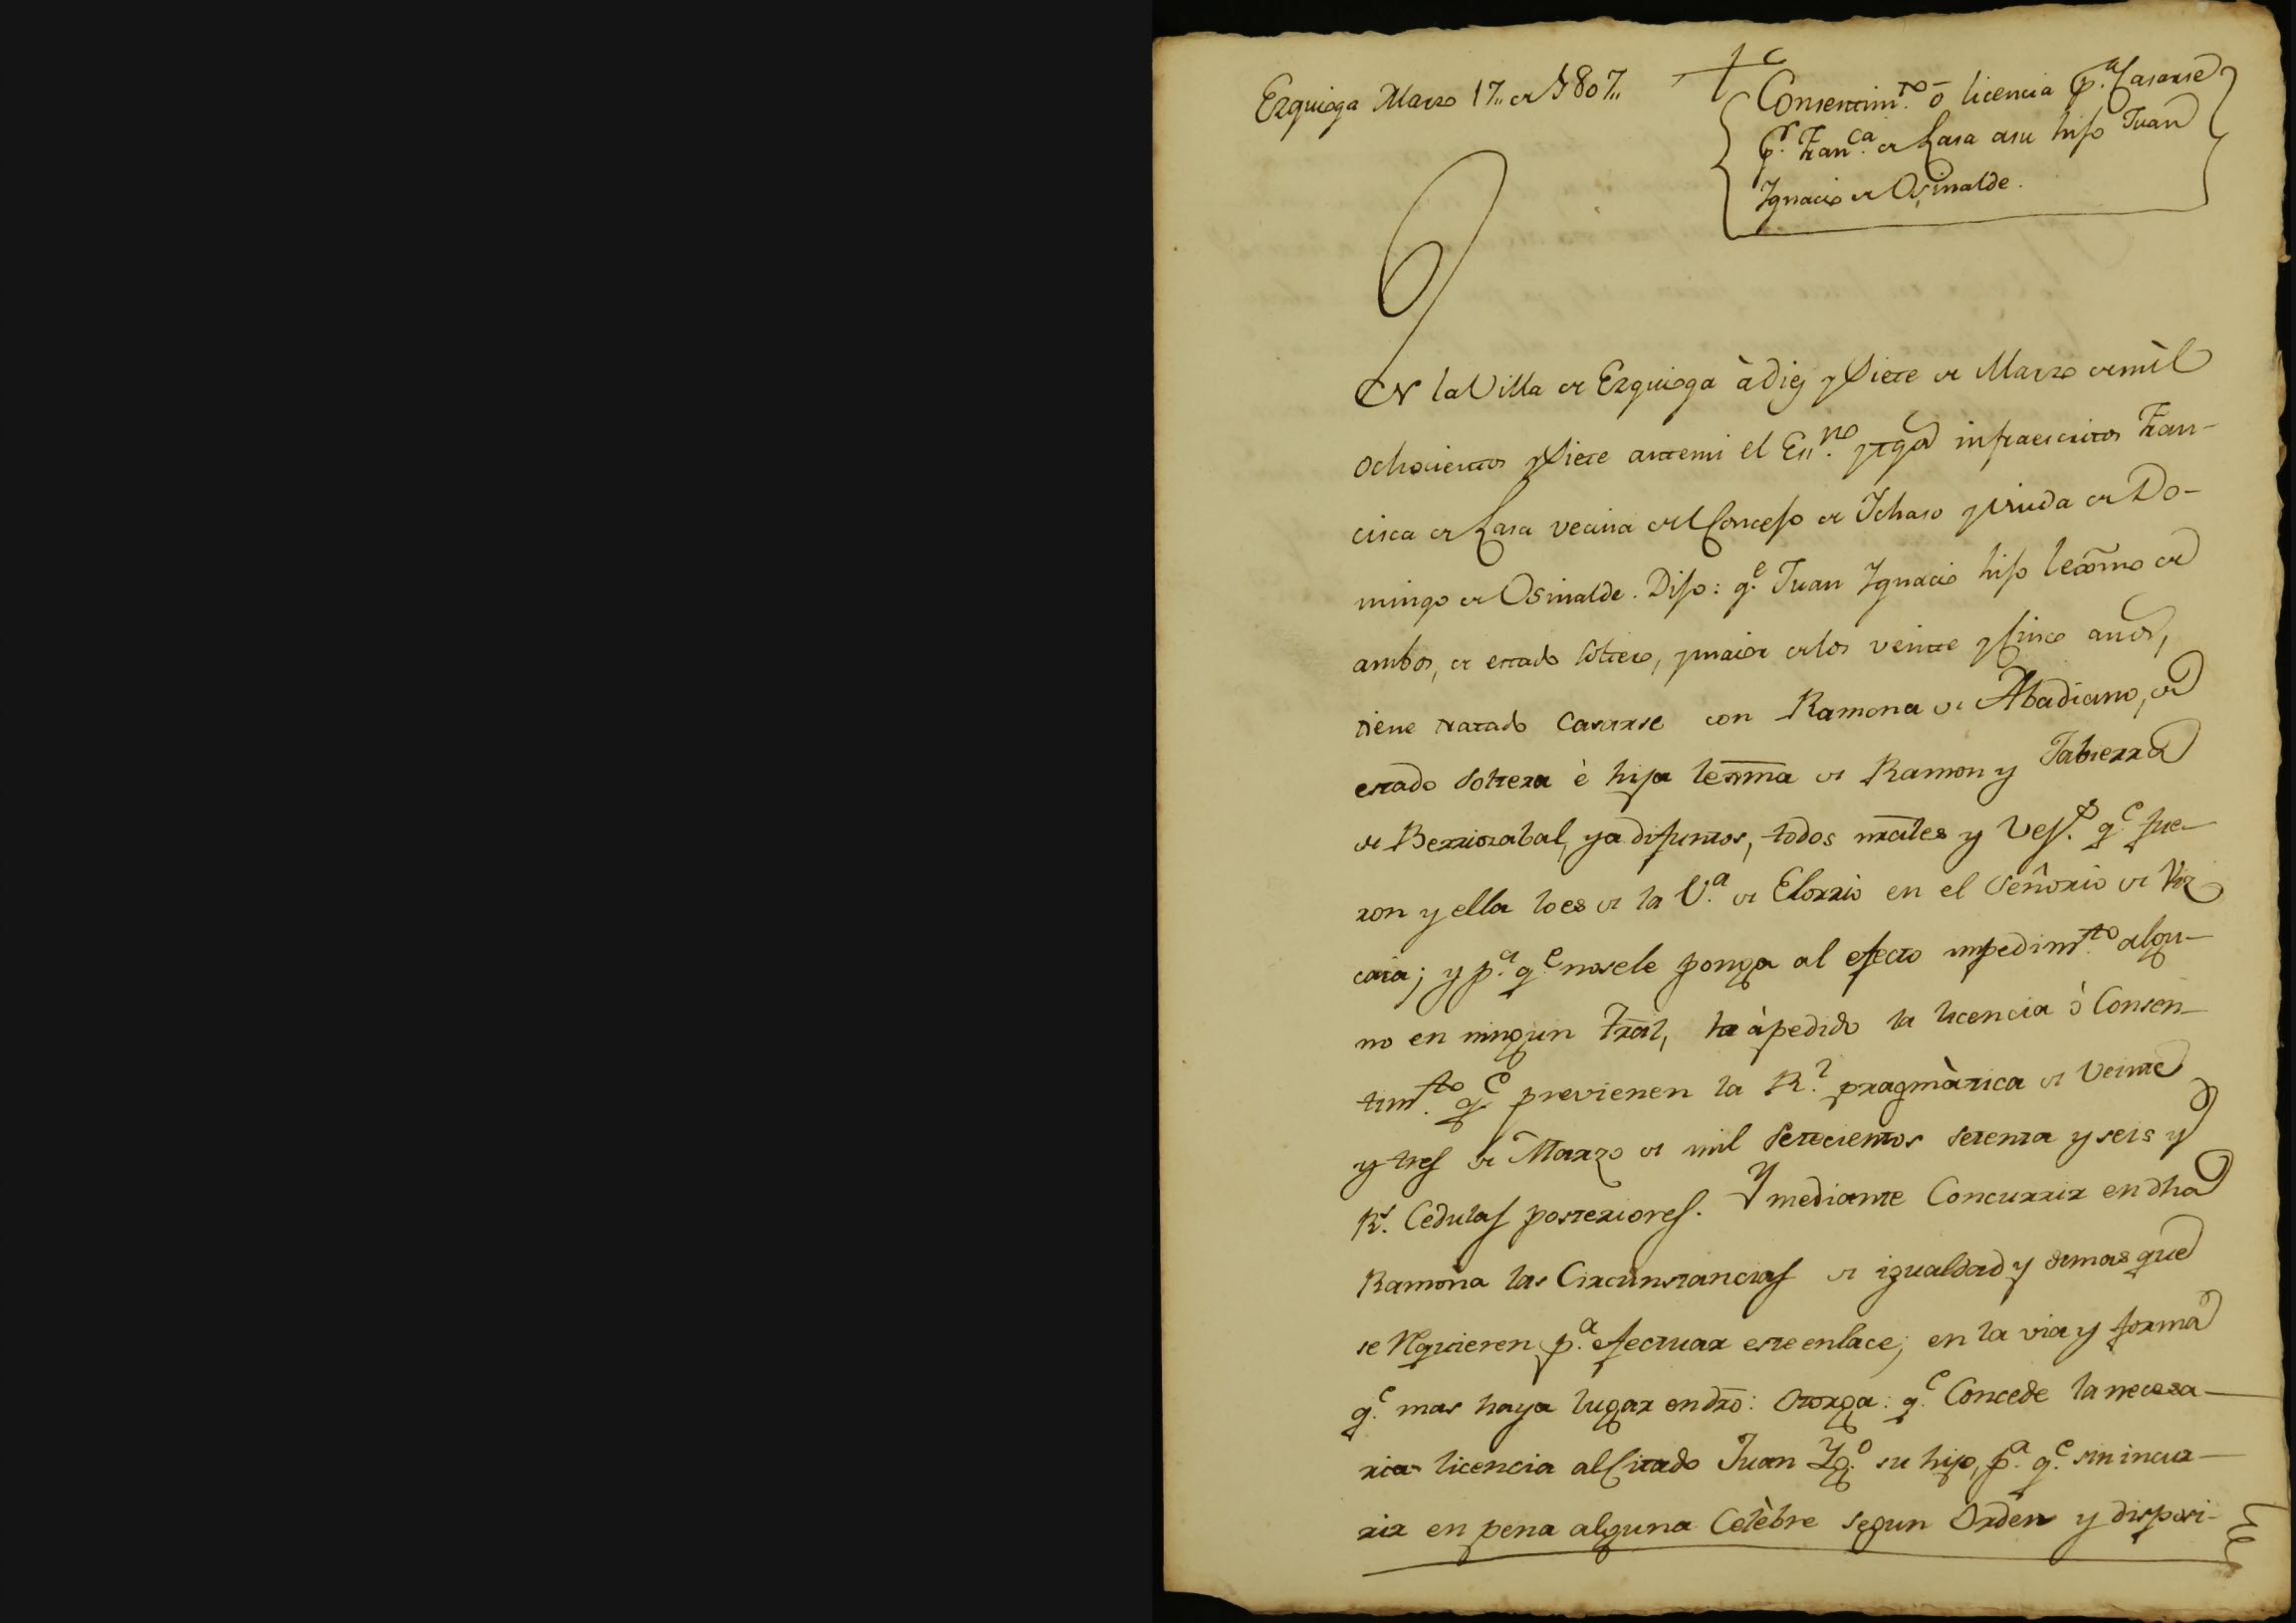 Ezquioga Marzo 17,, de 1807,,
Consentimto. ò licencia pa. Casarse
pr. Franca. de Lasa asu hijo Juan
Ignacio de Osinalde.
En la Villa de Ezquioga à diez y Siete de Marzo de mìl
ochocientos y Siete antemi el Esno. y tgos infraescritos Fran-
cisca de Lasa vecina del Concejo de Ichaso y viuda de Do-
mingo de Osinalde. Dijo: qe. Juan Ignacio hijo lexmo de
ambos, de estado soltero, y maior de los veinte y Cinco años,
tiene tratado Casarse con Ramona de Abadiano, de
estado Soltera è hija lexma de Ramon y Jabierra
de Berriozabal, ya difuntos, todos nrales y Vess. qe. fue-
ron y ella lo es de la Va. de Elorrio en el Señorio de Viz
caia; y pa. qe. nosele ponga al efecto impedimto. algu-
no en ningun tral, ha àpedido la licencia ò Consen-
timto. qe. previenen la Rl. pragmàtica de Veinte
y tres de Marzo de mil Setecientos setenta y seis y
Rs. Cedulas posteriores. Y mediante Concurrir en dha
Ramona las Circunstancias de igualdad y demas que
se Requieren pa. efectuar este enlace; en la via y forma
qe. mas haya lugar en dro: Otorga: qe. Concede la necesa-
ria licencia al Citado Juan Igo. su hijo, pa. qe. sin incur-
rir en pena alguna Celèbre segun Orden y disposi-